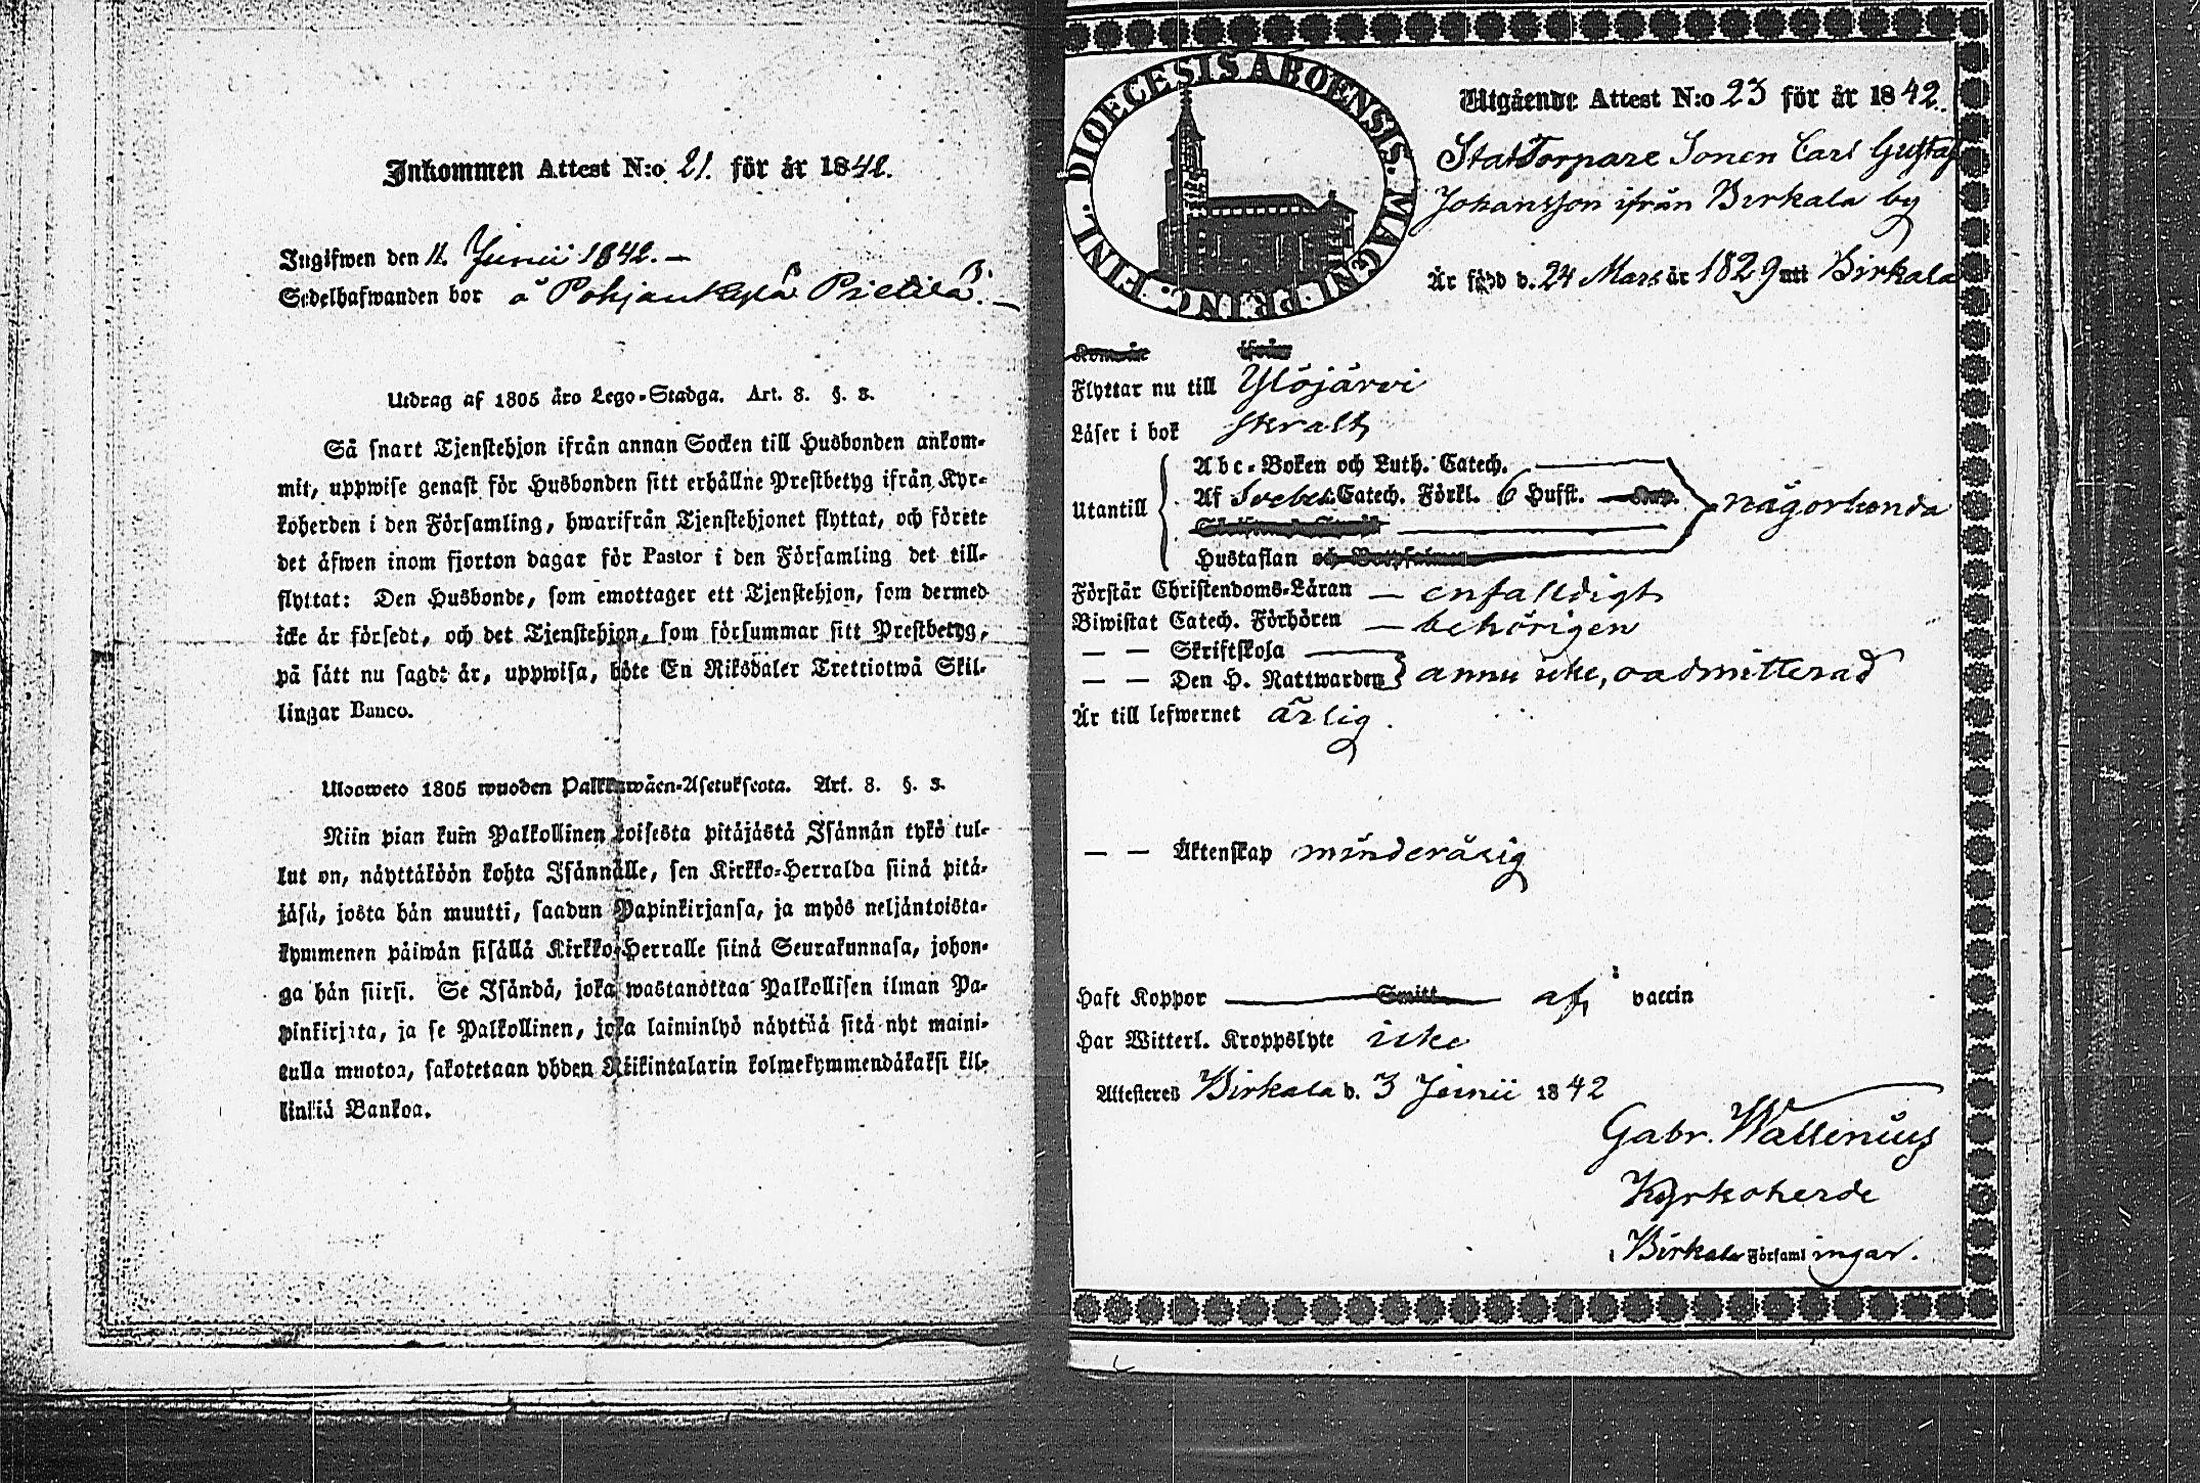 Inkommen Attest N:o 21. för år 1842.
Ingifwen den 11. Junii 1842. —
Sedelhafwanden bor å Pohjankylä Prietilä. —
Utdrag af 1805 års Lego-Stadga. Art. 8. §. 3.
Så snart Tjenstehjon ifrån annan Socken till Husbonden ankom-
mit, uppwise genast för Husbonden sitt erhållne Prestbetyg ifrån Kyr-
koherden i den Församling, hwarifrån Tjenstehjonet flyttat, och förete
det äfwen inom fjorton dagar för Pastor i den Församling det till-
flyttat: Den Husbonde, som emottager ett Tjenstehjon, som dermed
icke är försedt, och det Tjenstehjon, som försummar sitt Prestbetyg,
på sätt nu sagdt är, uppwisa, böte En Riksdaler Trettiotwå Skil-
lingar Banco.
Ulosweto 1805 wuoden Palkkawäen-Asetuksesta. Art. 8. §. 3.
Niin pian kuin Palkollinen toisesta pitäjästä Isännän tykö tul-
lut on, näyttäköön kohta Isännälle, sen Kirkko-Herralda siinä pitä-
jäsä, josta hän muutti, saadun Papinkirjansa, ja myös neljäntoista-
kymmenen päiwän sisällä Kirkko-Herralle siinä Seurakunnasa, johon-
ga hän siirsi. Se Isändä, joka wastanottaa Palkollisen ilman Pa-
pinkirjata, ja se Palkollinen, joka laiminlyö näyttää sitä nyt maini-
tulla muotoa, sakotetaan yhden Riikintalarin kolmekymmendäkaksi kil-
linkiä Bankoa.
DIOECESIS ABOENSIS. MAGNI PRINC. FINL.
Utgående Attest N:o 23 för år 1842.
StatTorpare Sonen Carl Gustaf
Johansson ifrån Birkala by
Är född d. 24 Mars år 1829 uti Birkala
Kom år ifrån
Flyttar nu till Ylöjärvi
Läser i bok skralt
Abc-Boken och Luth. Catech.
Utantill Af Svebel. Catech. Förkl. 6 Hufst. någorlunda
Hustaflan och Botpsalmen
Förstår Christendoms-Läran — enfaldigt
Biwistat Catech. Förhören — behörigen
— — Skriftskola
— — Den H. Nattwarden annu icke, oadmitterad
Är till lefwernet ärlig.
— — Äktenskap minderårig
Haft Koppor Smitt af vaccin
Har Witterl. Kroppslyte icke
Attesteres Birkala d. 3 Junii 1842
Gabr. Wallenius
Kyrkoherde
i Birkala Församlingar.